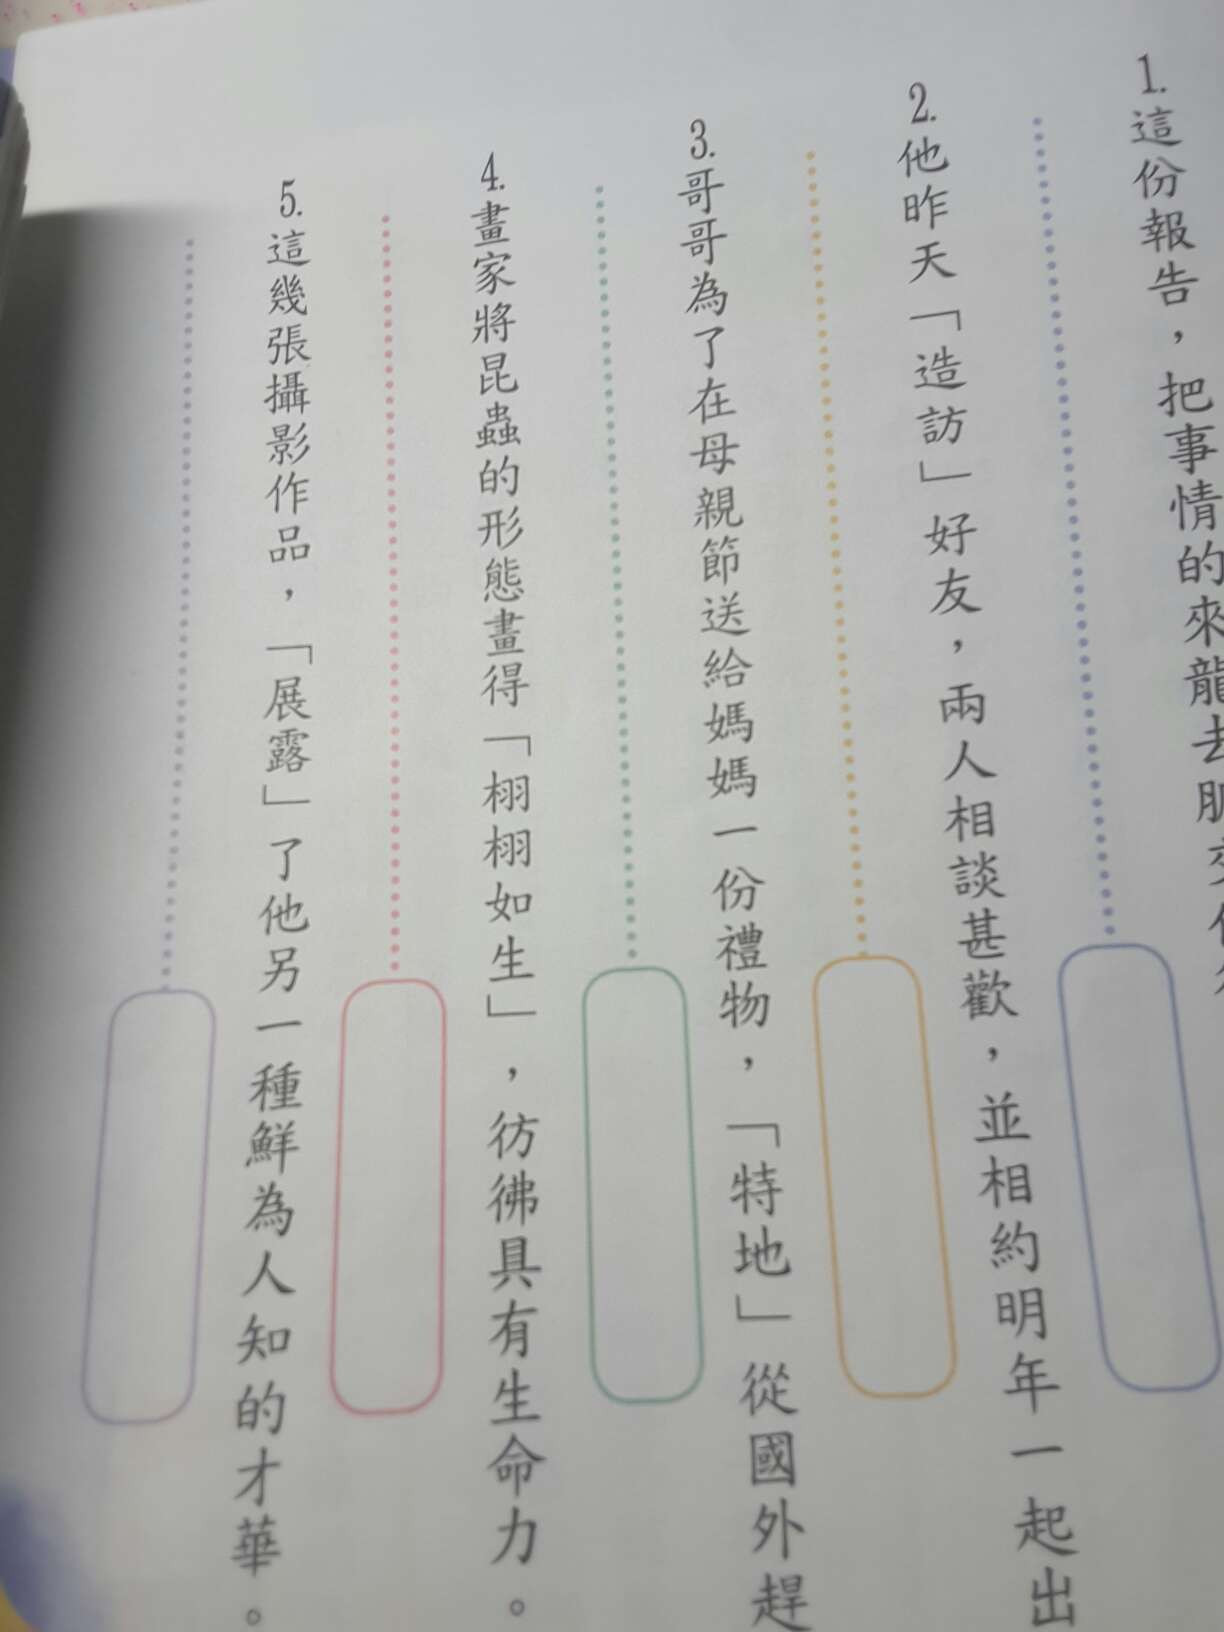 1.這份報告，把事情的來龍去脈交
2.他昨天「造訪」好友，兩人相談甚歡，並相約明年一起出
3.哥哥為了在母親節送給媽媽一份禮物，「特地」從國外趕
4.畫家將昆蟲的形態畫得「栩栩如生」，彷彿具有生命力。
5.這幾張攝影作品，「展露」了他另一種鮮為人知的才華。